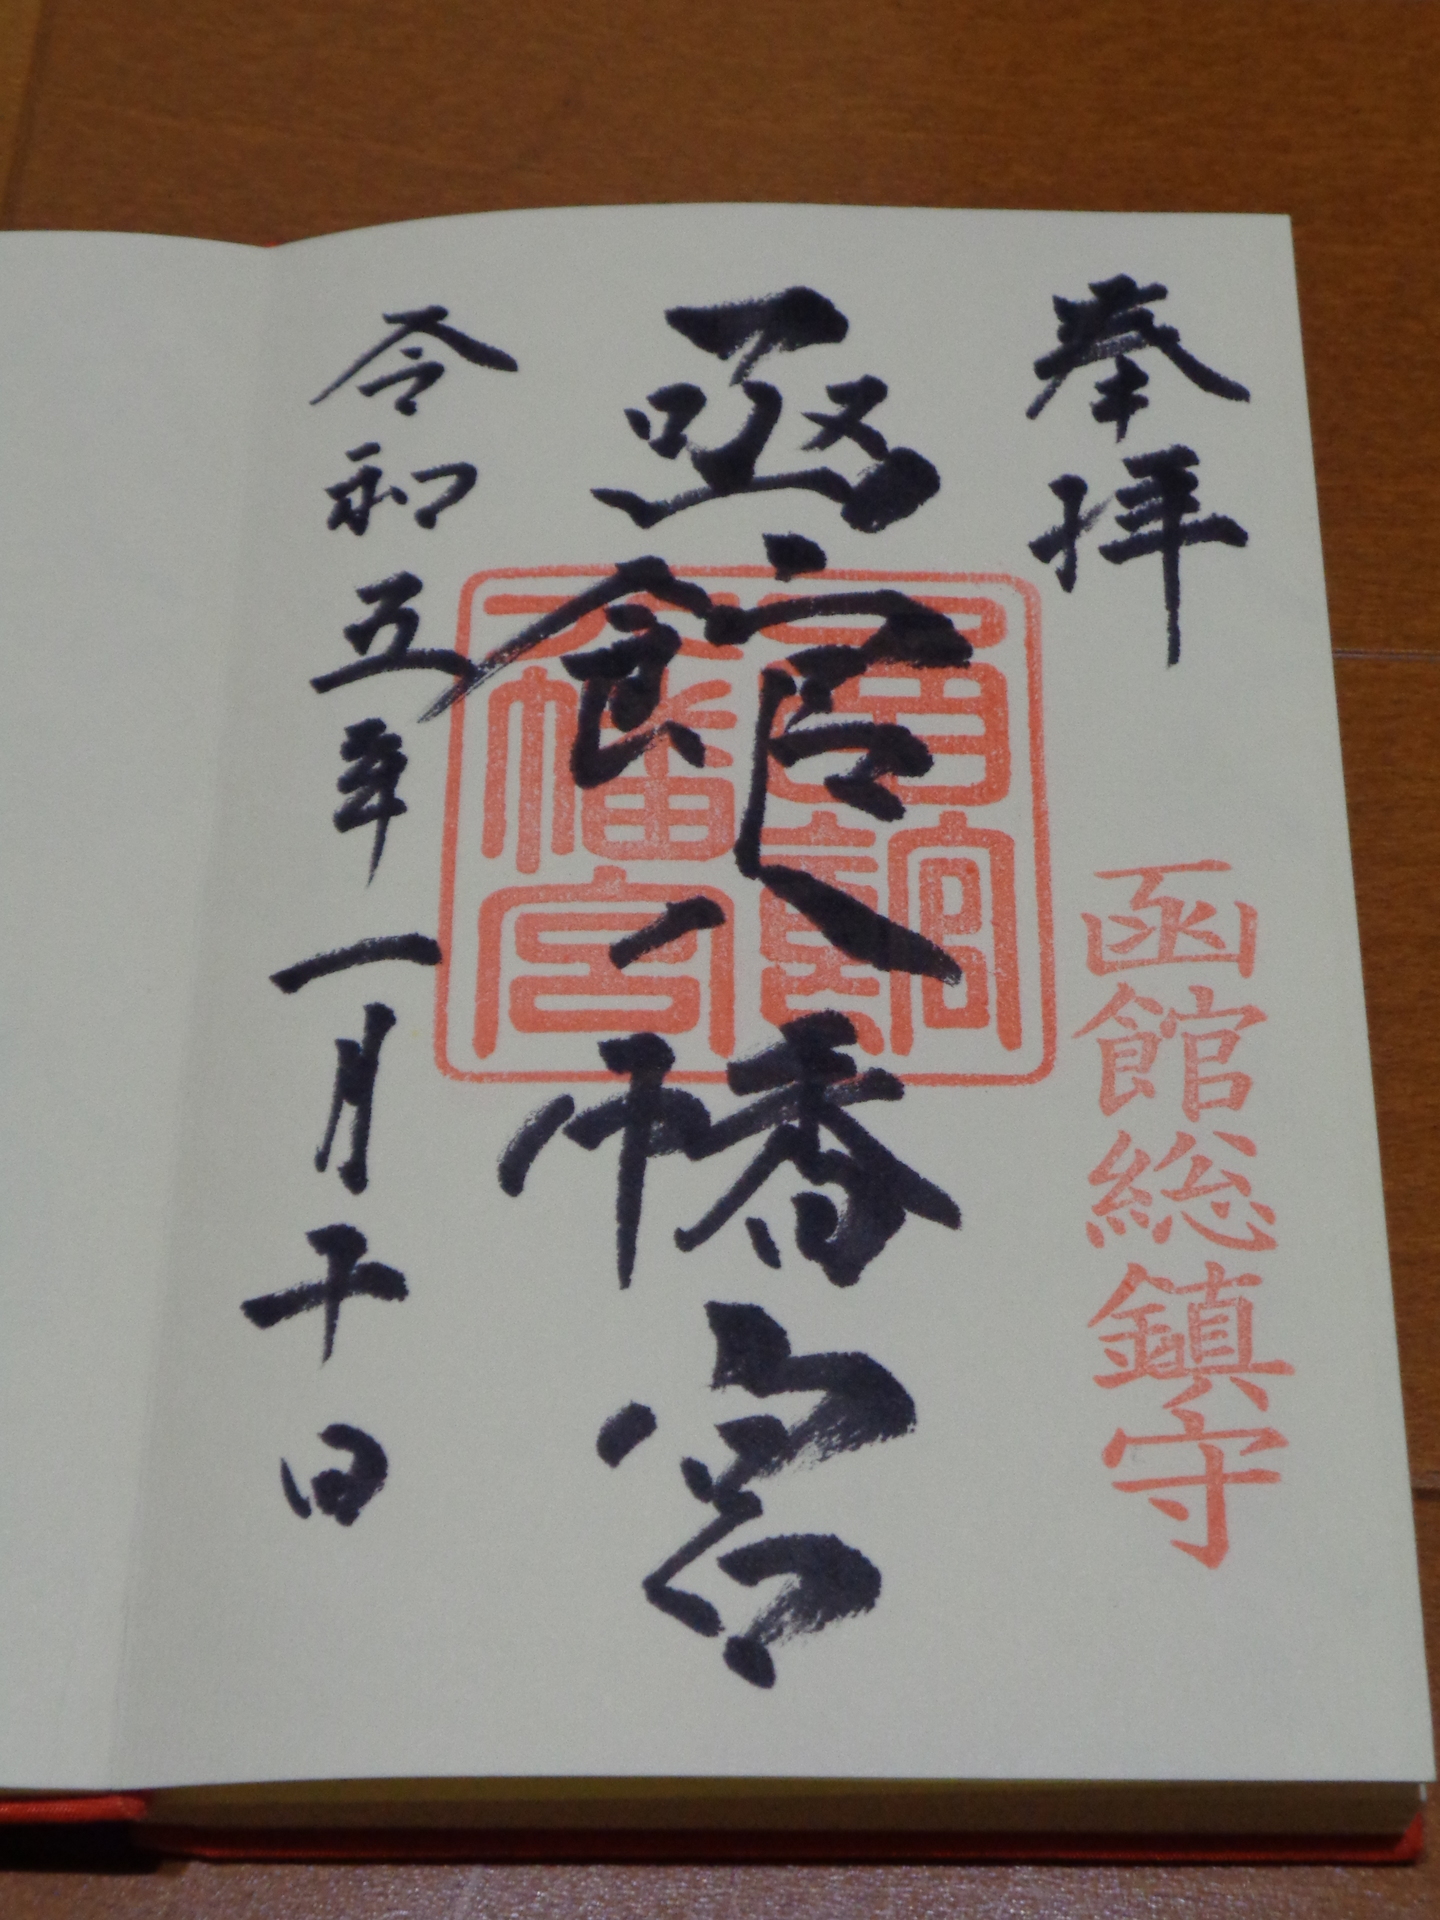 奉拝
函館総鎮守
函館八幡宮
函館
八幡宮
令和五年一月十日